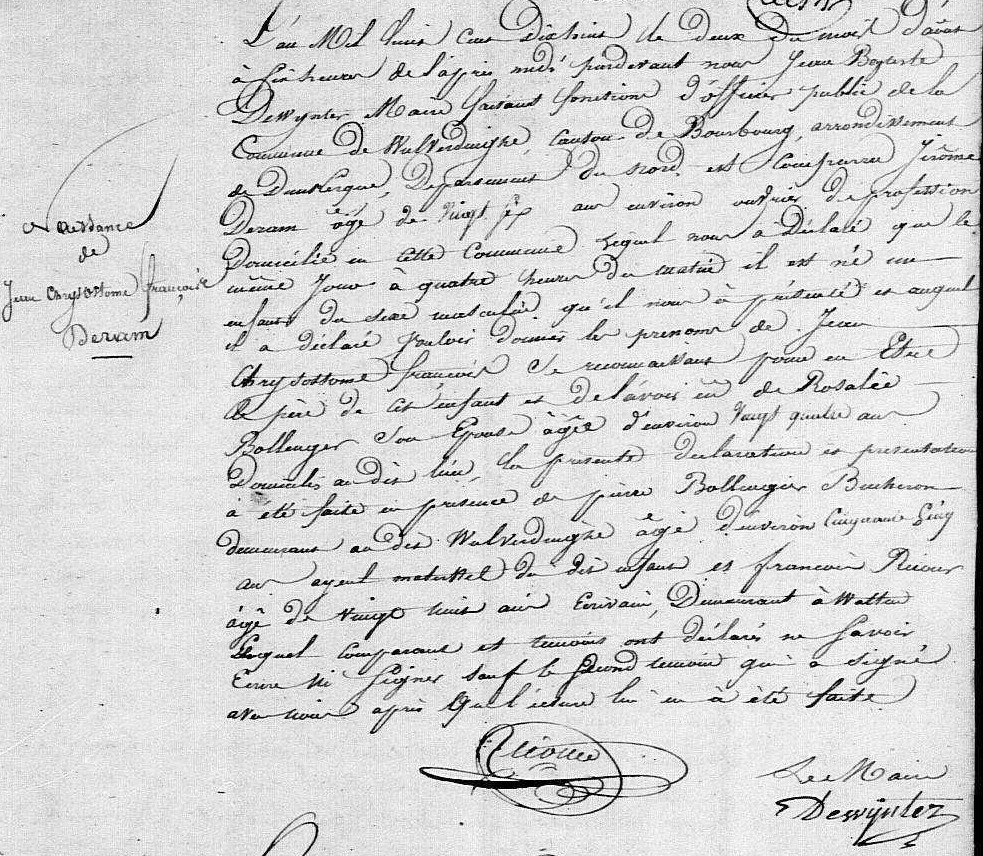 L'an Mil huit cent dixhuit le deux du mois d'août
à six heures de l'après midi pardevant nous Jean Baptiste
Dewynter Maire faisant fonctions d'officier public de la
Commune de Wulverdinghe, canton de Bourbourg, arrondissement
de Dunkerque, Département du nord est Comparru Jérôme
Deram âgé de vingt sep ans environ ouvrier de profession
Domicilié en cette Commune lequel nous a Déclaré que le
même Jour à quatre heures du matin il est né un
enfant du sexe masculin qu'il nous à présenté et auquel
il a déclaré vouloir donner les prenoms de Jean
Chrysostome françois se reconnaissant pour en Etre
le père de cet enfant et de l'avoir eû de Rosalie
Bollenger son Epouse âgée d'environ vingt quatre ans
Domiciliés au dit lieu, la presente declaration et presentation
a eté faite en presence de pierre Bollenger Bucheron
demeurant au dit Wulverdinghe âgé d'environ Cinquante Cinq
ans ayeul maternel du dit enfant et francois
âgé de vingt huit ans Ecrivain, Demeurant à Watten
Lequel comparant et temoins ont déclarés ne savoir
Ecrire ni signer sauf le second temoin qui a signé
avec nous après que lecture lui en à été faite
naissance
de
Jean Chrysostome françois
Deram
Le Maire
Dewynter